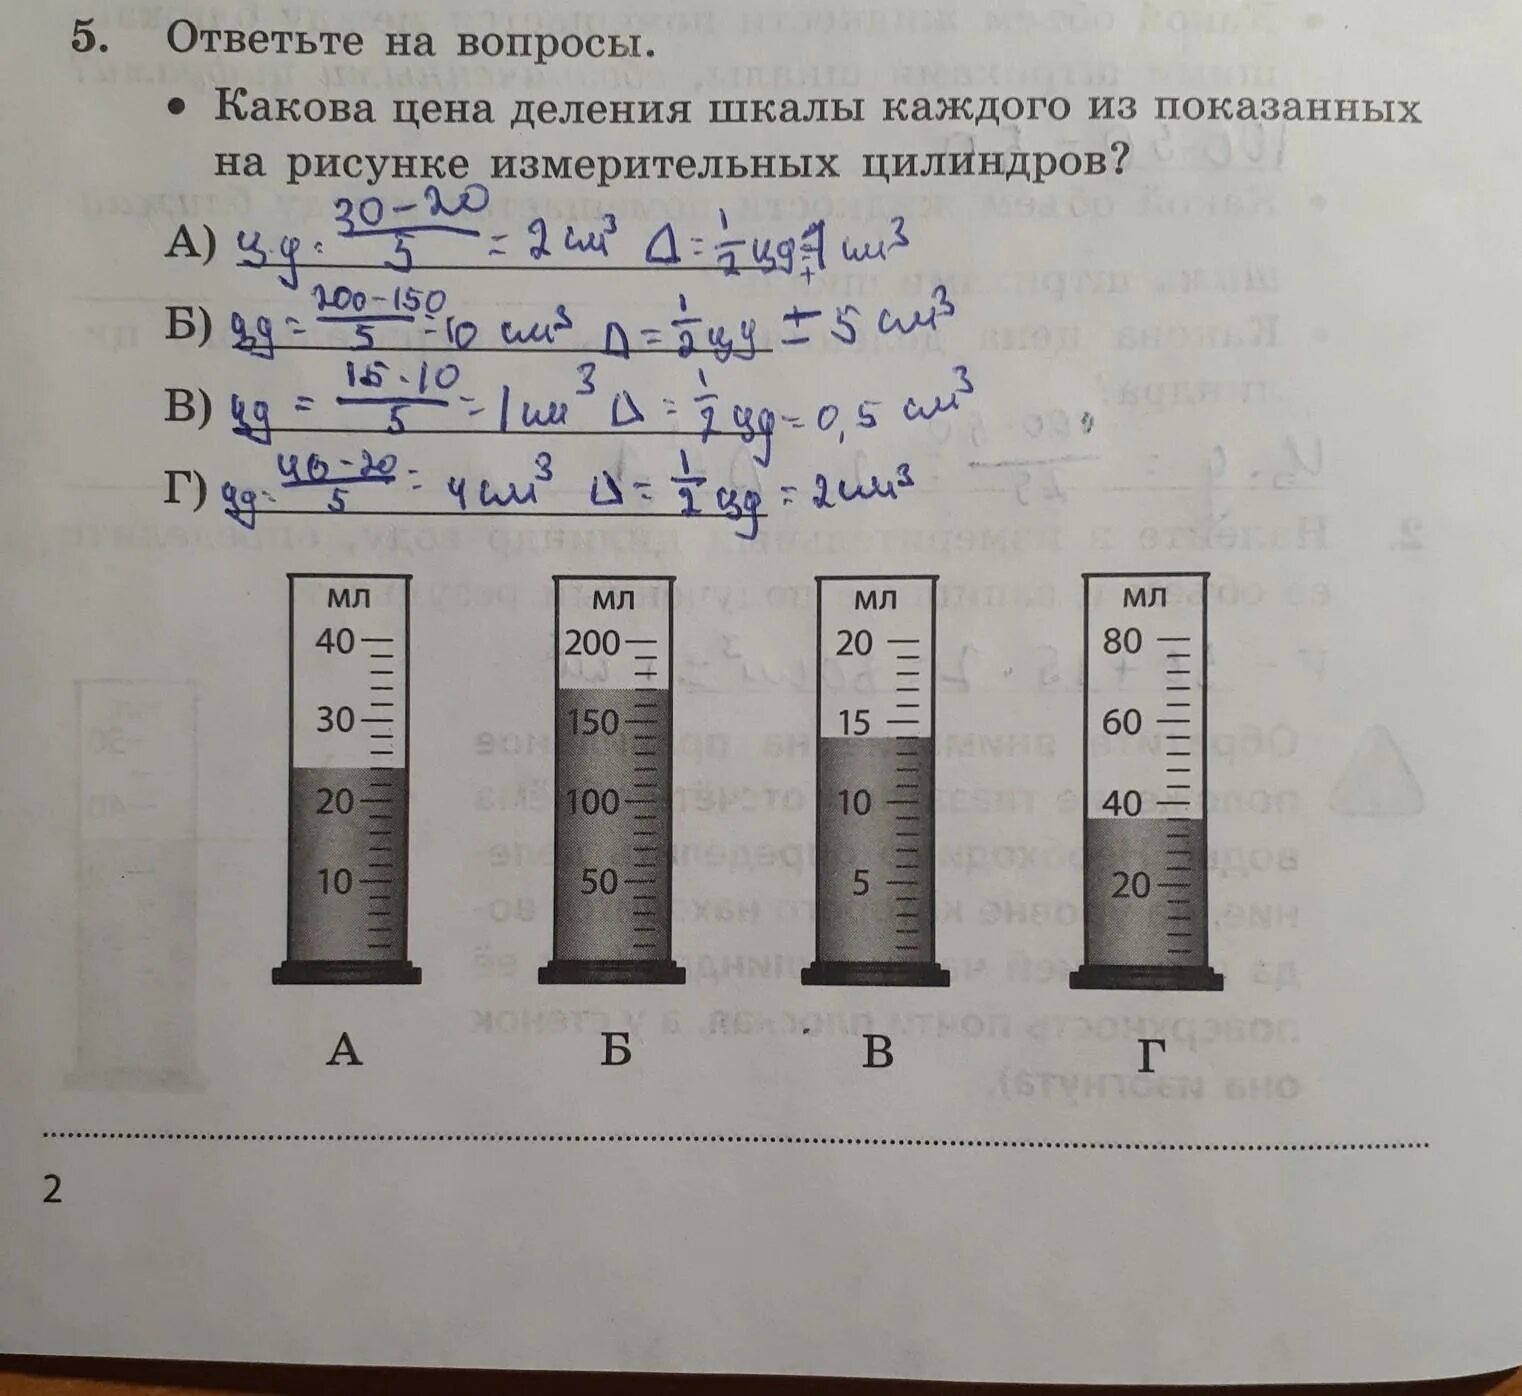 5. Ответьте на вопросы.
• Какова цена деления шкалы каждого из показанных
на рисунке измерительных цилиндров?
А) ц.д = 30-20/5 = 2 см³ Δ = 1/2 цд ± 1 см³
Б) цд = 200-150/5 = 10 см³ Δ = 1/2 цд ± 5 см³
В) цд = 15-10/5 = 1 см³ Δ = 1/2 цд = 0,5 см³
Г) цд = 40-20/5 = 4 см³ Δ = 1/2 цд = 2 см³
мл мл мл мл
40 200 20 80
30 150 15 60
20 100 10 40
10 50 5 20
А Б В Г
2